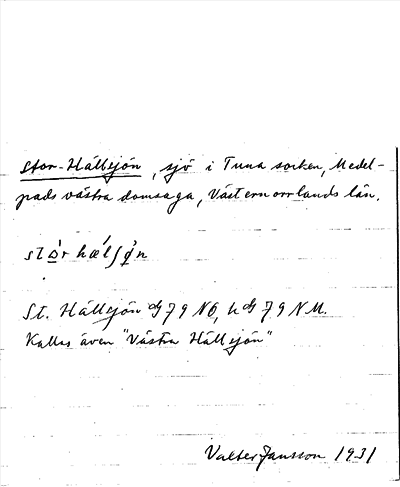 Stor-Hällsjön, sjö i Tuna socken, Medel-
pads västra domsaga, Västernorrlands län.
St. Hällsjön 79 NO, 79 NV.
Kallas även "Västra Hällsjön"
Valter Jansson 1931